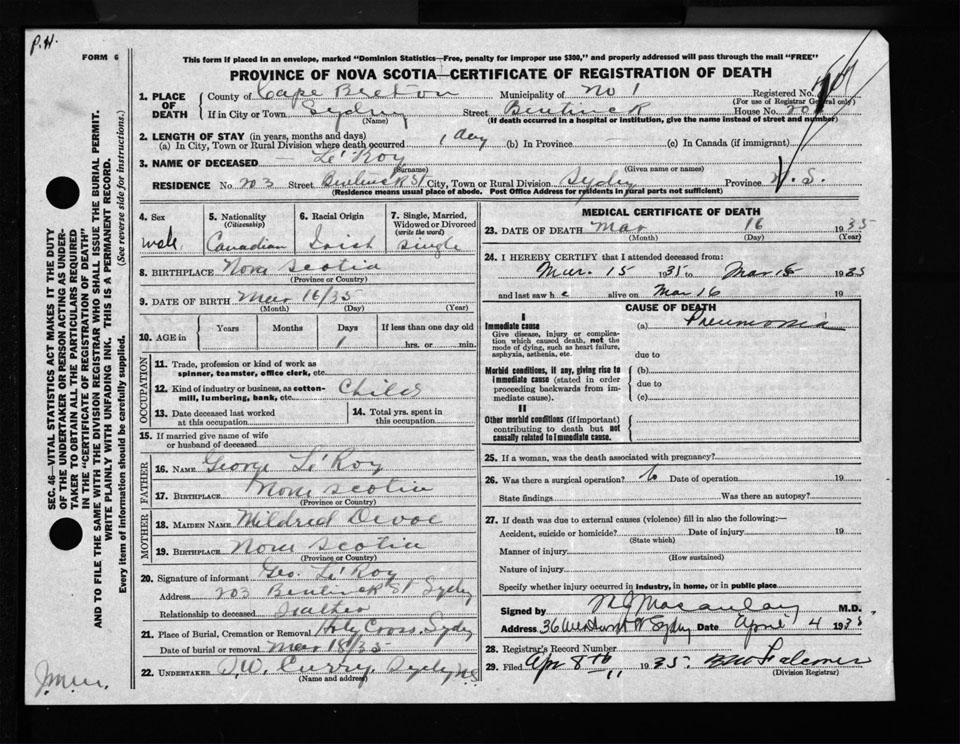 P.H.
FORM 6
This form if placed in an envelope, marked "Dominion Statistics—Free, penalty for improper use $300," and properly addressed will pass through the mail "FREE"
PROVINCE OF NOVA SCOTIA—CERTIFICATE OF REGISTRATION OF DEATH
1. PLACE OF DEATH
County of Cape Breton Municipality of No 1 Registered No.
(For use of Registrar General only)
If in City or Town Sydney Street Bentinck House No. 203
(Name) (If death occurred in a hospital or institution, give the name instead of street and number)
2. LENGTH OF STAY (in years, months and days)
(a) In City, Town or Rural Division where death occurred 1 day (b) In Province (c) In Canada (if immigrant)
3. NAME OF DECEASED — Le'Roy
(Surname) (Given name or names)
RESIDENCE No. 203 Street Bentinck St City, Town or Rural Division Sydney Province N.S.
(Residence means usual place of abode. Post Office Address for residents in rural parts not sufficient)
4. Sex
male
5. Nationality
(Citizenship)
Canadian
6. Racial Origin
Irish
7. Single, Married, Widowed or Divorced
(write the word)
single
8. BIRTHPLACE Nova Scotia
(Province or Country)
9. DATE OF BIRTH Mar 16/35
(Month) (Day) (Year)
10. AGE in
Years Months Days If less than one day old
1 hrs. or min.
OCCUPATION
11. Trade, profession or kind of work as
spinner, teamster, office clerk, etc.
12. Kind of industry or business, as cotton-
mill, lumbering, bank, etc. Child
13. Date deceased last worked
at this occupation
14. Total yrs. spent in
this occupation
15. If married give name of wife
or husband of deceased
FATHER
16. NAME George Le'Roy
17. BIRTHPLACE Nova Scotia
(Province or Country)
MOTHER
18. MAIDEN NAME Mildred Devoe
19. BIRTHPLACE Nova Scotia
(Province or Country)
20. Signature of informant Geo. Le'Roy
Address 203 Bentinck St Sydney
Relationship to deceased Father
21. Place of Burial, Cremation or Removal Holy Cross, Sydney
Date of burial or removal Mar 18/35
22. UNDERTAKER D.W. Curry, Sydney N.S.
(Name and address)
MEDICAL CERTIFICATE OF DEATH
23. DATE OF DEATH Mar 16 1935
(Month) (Day) (Year)
24. I HEREBY CERTIFY that I attended deceased from:
Mar. 15 1935 to Mar 1935
and last saw h e alive on Mar 16 19
CAUSE OF DEATH
I
Immediate cause
Give disease, injury or complication which caused death, not the mode of dying, such as heart failure, asphyxia, asthenia, etc.
(a) Pneumonia
due to
Morbid conditions, if any, giving rise to immediate cause (stated in order proceeding backwards from immediate cause).
(b)
due to
(c)
II
Other morbid conditions (if important) contributing to death but not causally related to immediate cause.
25. If a woman, was the death associated with pregnancy?
26. Was there a surgical operation? No Date of operation 19
State findings Was there an autopsy?
27. If death was due to external causes (violence) fill in also the following:—
Accident, suicide or homicide? Date of injury 19
(State which)
Manner of injury
(How sustained)
Nature of injury
Specify whether injury occurred in industry, in home, or in public place
Signed by N J Macaulay M.D.
Address 36 Sydney Date April 4 1935
28. Registrar's Record Number
29. Filed Apr 8th 1935
(Division Registrar)
SEC. 46—VITAL STATISTICS ACT MAKES IT THE DUTY
OF THE UNDERTAKER OR PERSON ACTING AS UNDER-
TAKER TO OBTAIN ALL THE PARTICULARS REQUIRED
IN THE "CERTIFICATE OF REGISTRATION OF DEATH"
AND TO FILE THE SAME WITH THE DIVISION REGISTRAR WHO SHALL ISSUE THE BURIAL PERMIT.
WRITE PLAINLY WITH UNFADING INK. THIS IS A PERMANENT RECORD.
Every item of information should be carefully supplied. (See reverse side for instructions.)